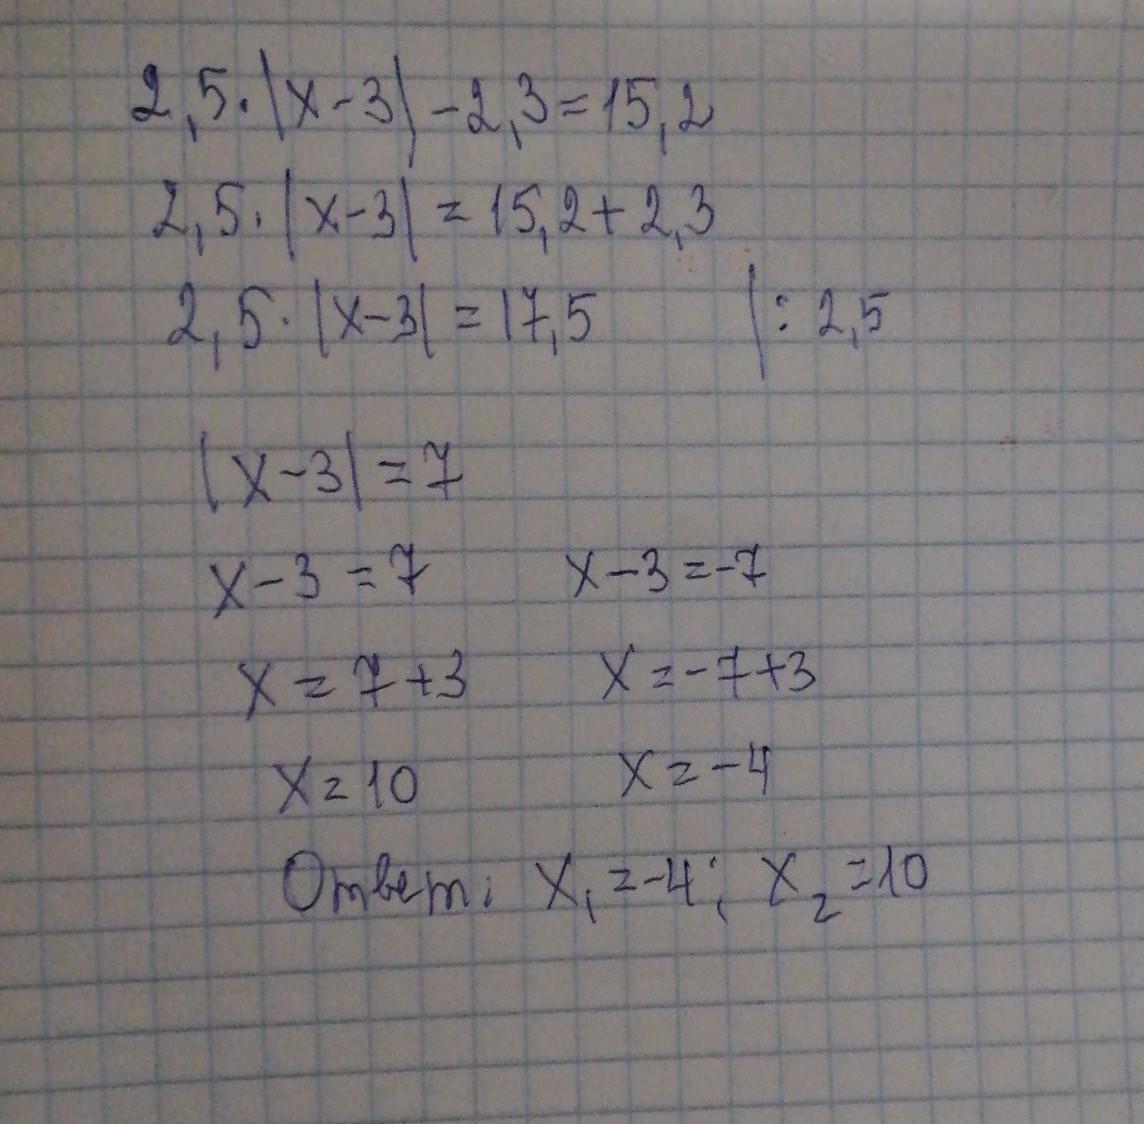 2,5·|x-3|-2,3=15,2
2,5·|x-3|=15,2+2,3
2,5·|x-3|=17,5 |:2,5
|x-3|=7
x-3=7 x-3=-7
x=7+3 x=-7+3
x=10 x=-4
Ответ: x₁=-4; x₂=10